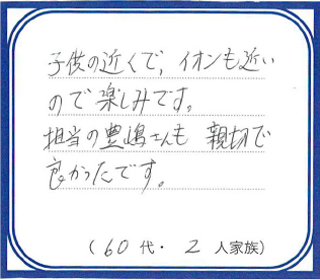 子供の近くで、イオンも近い
ので楽しみです。
担当の豊嶋さんも 親切で
良かったです。
(60代・2人家族)